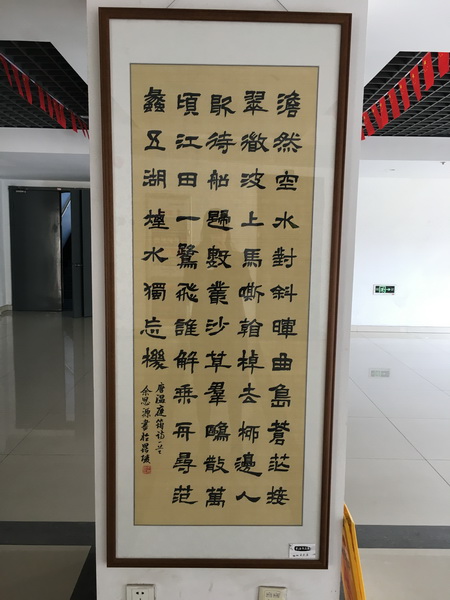 澹然空水對斜暉曲島蒼茫接
翠微波上馬嘶看棹去柳邊人
歇待船歸數叢沙草羣鷗散萬
頃江田一鷺飛誰解乘舟尋范
蠡五湖煙水獨忘機
唐溫庭筠詩一首
余思源書於毘陵